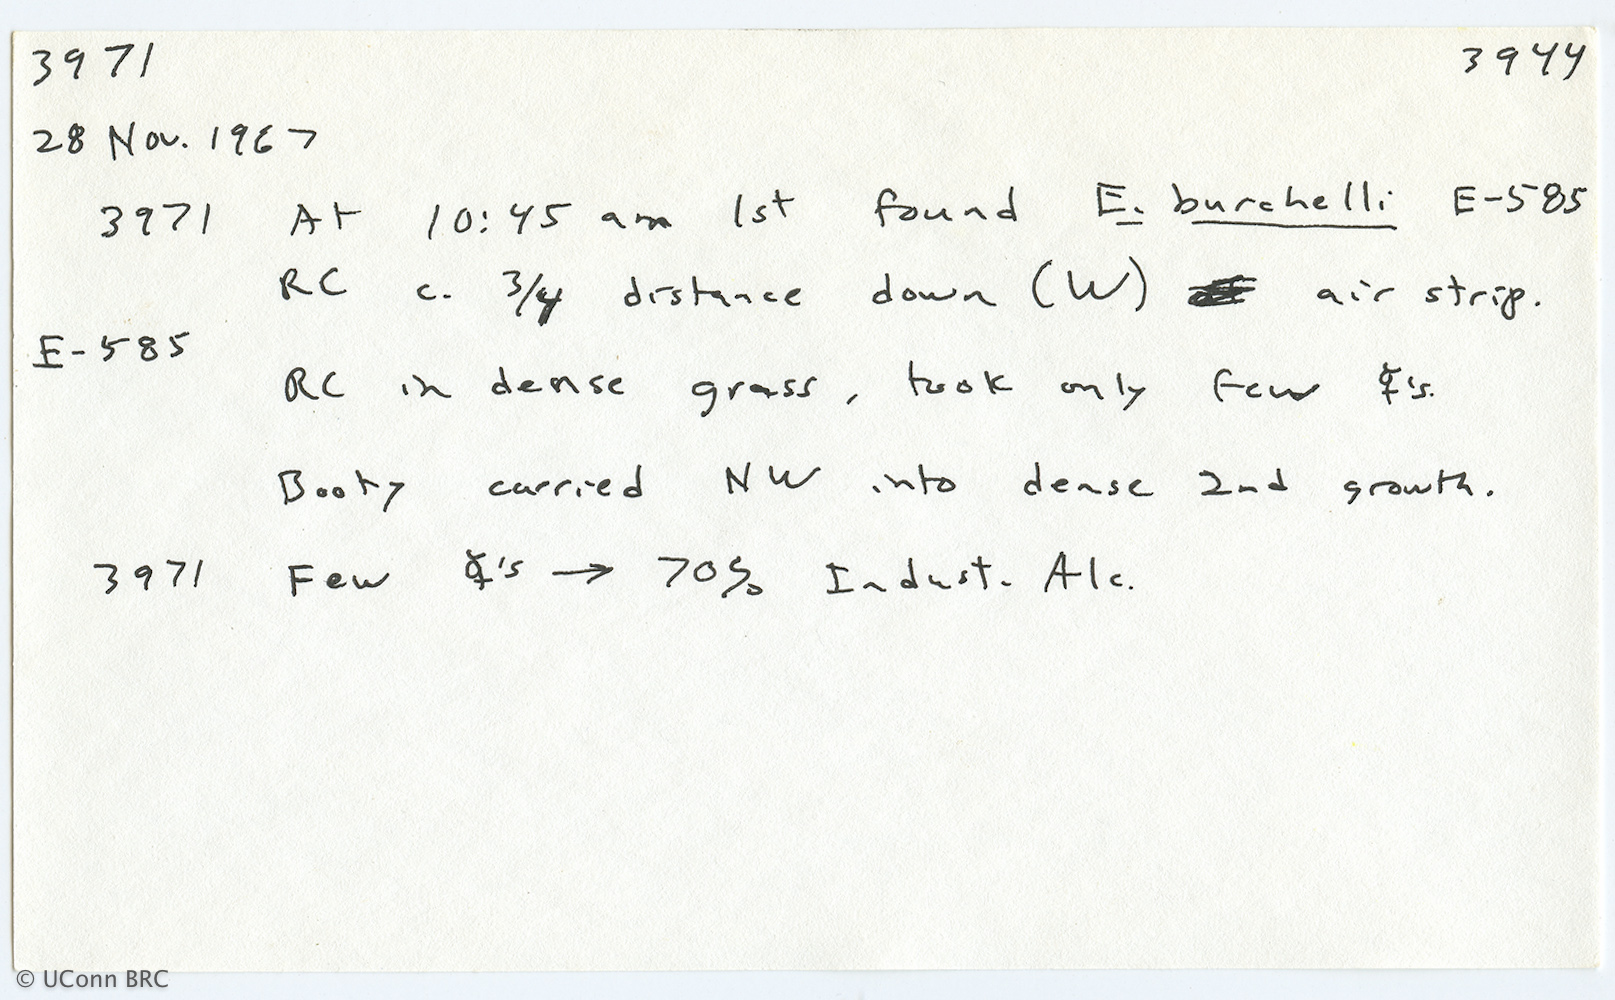 3971 3944
28 Nov. 1967
3971 At 10:45 am 1st found E. burchelli E-585
RC c. 3/4 distance down (W) air strip.
E-585
RC in dense grass, took only few ☿'s.
Booty carried NW into dense 2nd growth.
3971 Few ☿'s → 70% Indust. Alc.
© UConn BRC